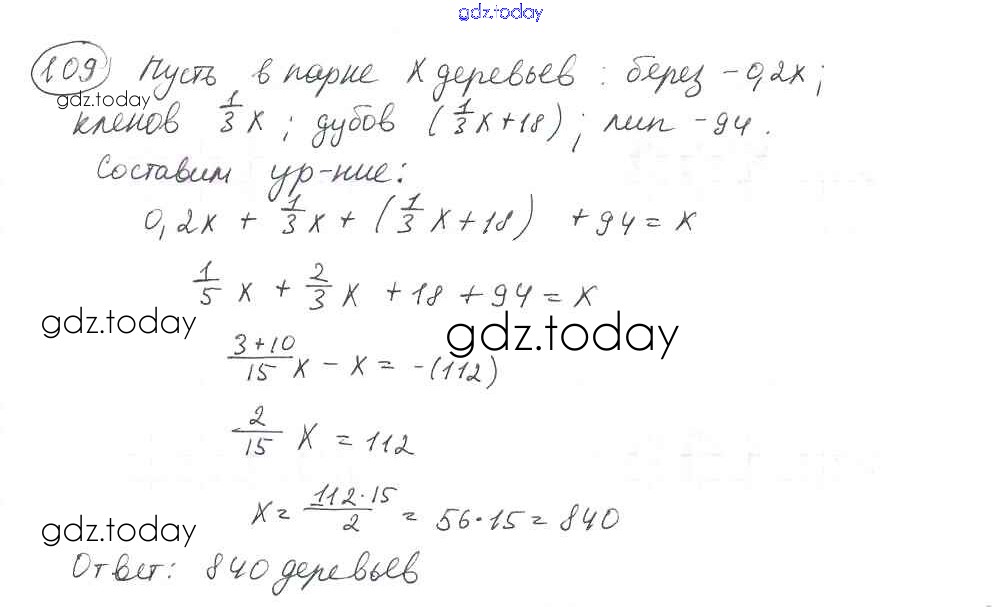 gdz.today
109) Пусть в парке x деревьев : берез - 0,2x ;
gdz.today
кленов 1/3 x ; дубов (1/3 x + 18) ; лип - 94 .
Составим ур-ние:
0,2x + 1/3 x + (1/3 x + 18) + 94 = x
1/5 x + 2/3 x + 18 + 94 = x
gdz.today gdz.today
3+10/15 x - x = -(112)
2/15 x = 112
x = 112·15/2 = 56·15 = 840
gdz.today
Ответ: 840 деревьев